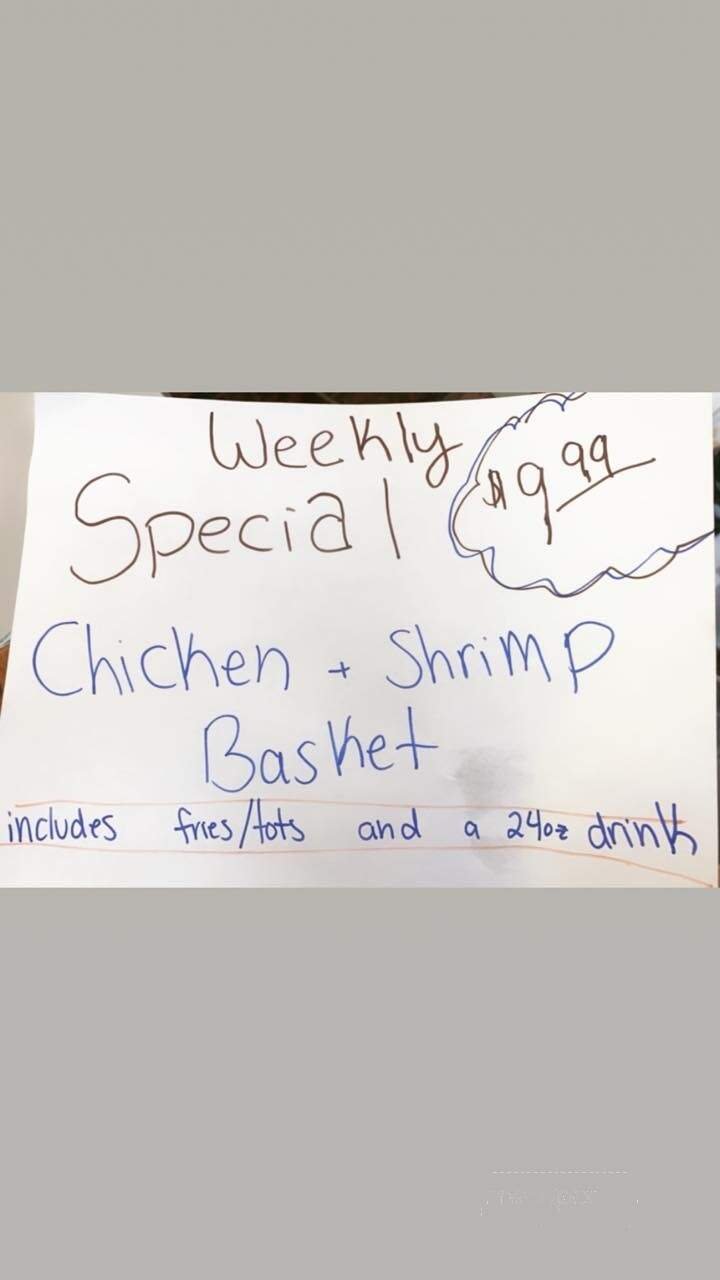 Weekly
Special
$9.99
Chicken + Shrimp
Basket
includes fries/tots and a 24oz drink